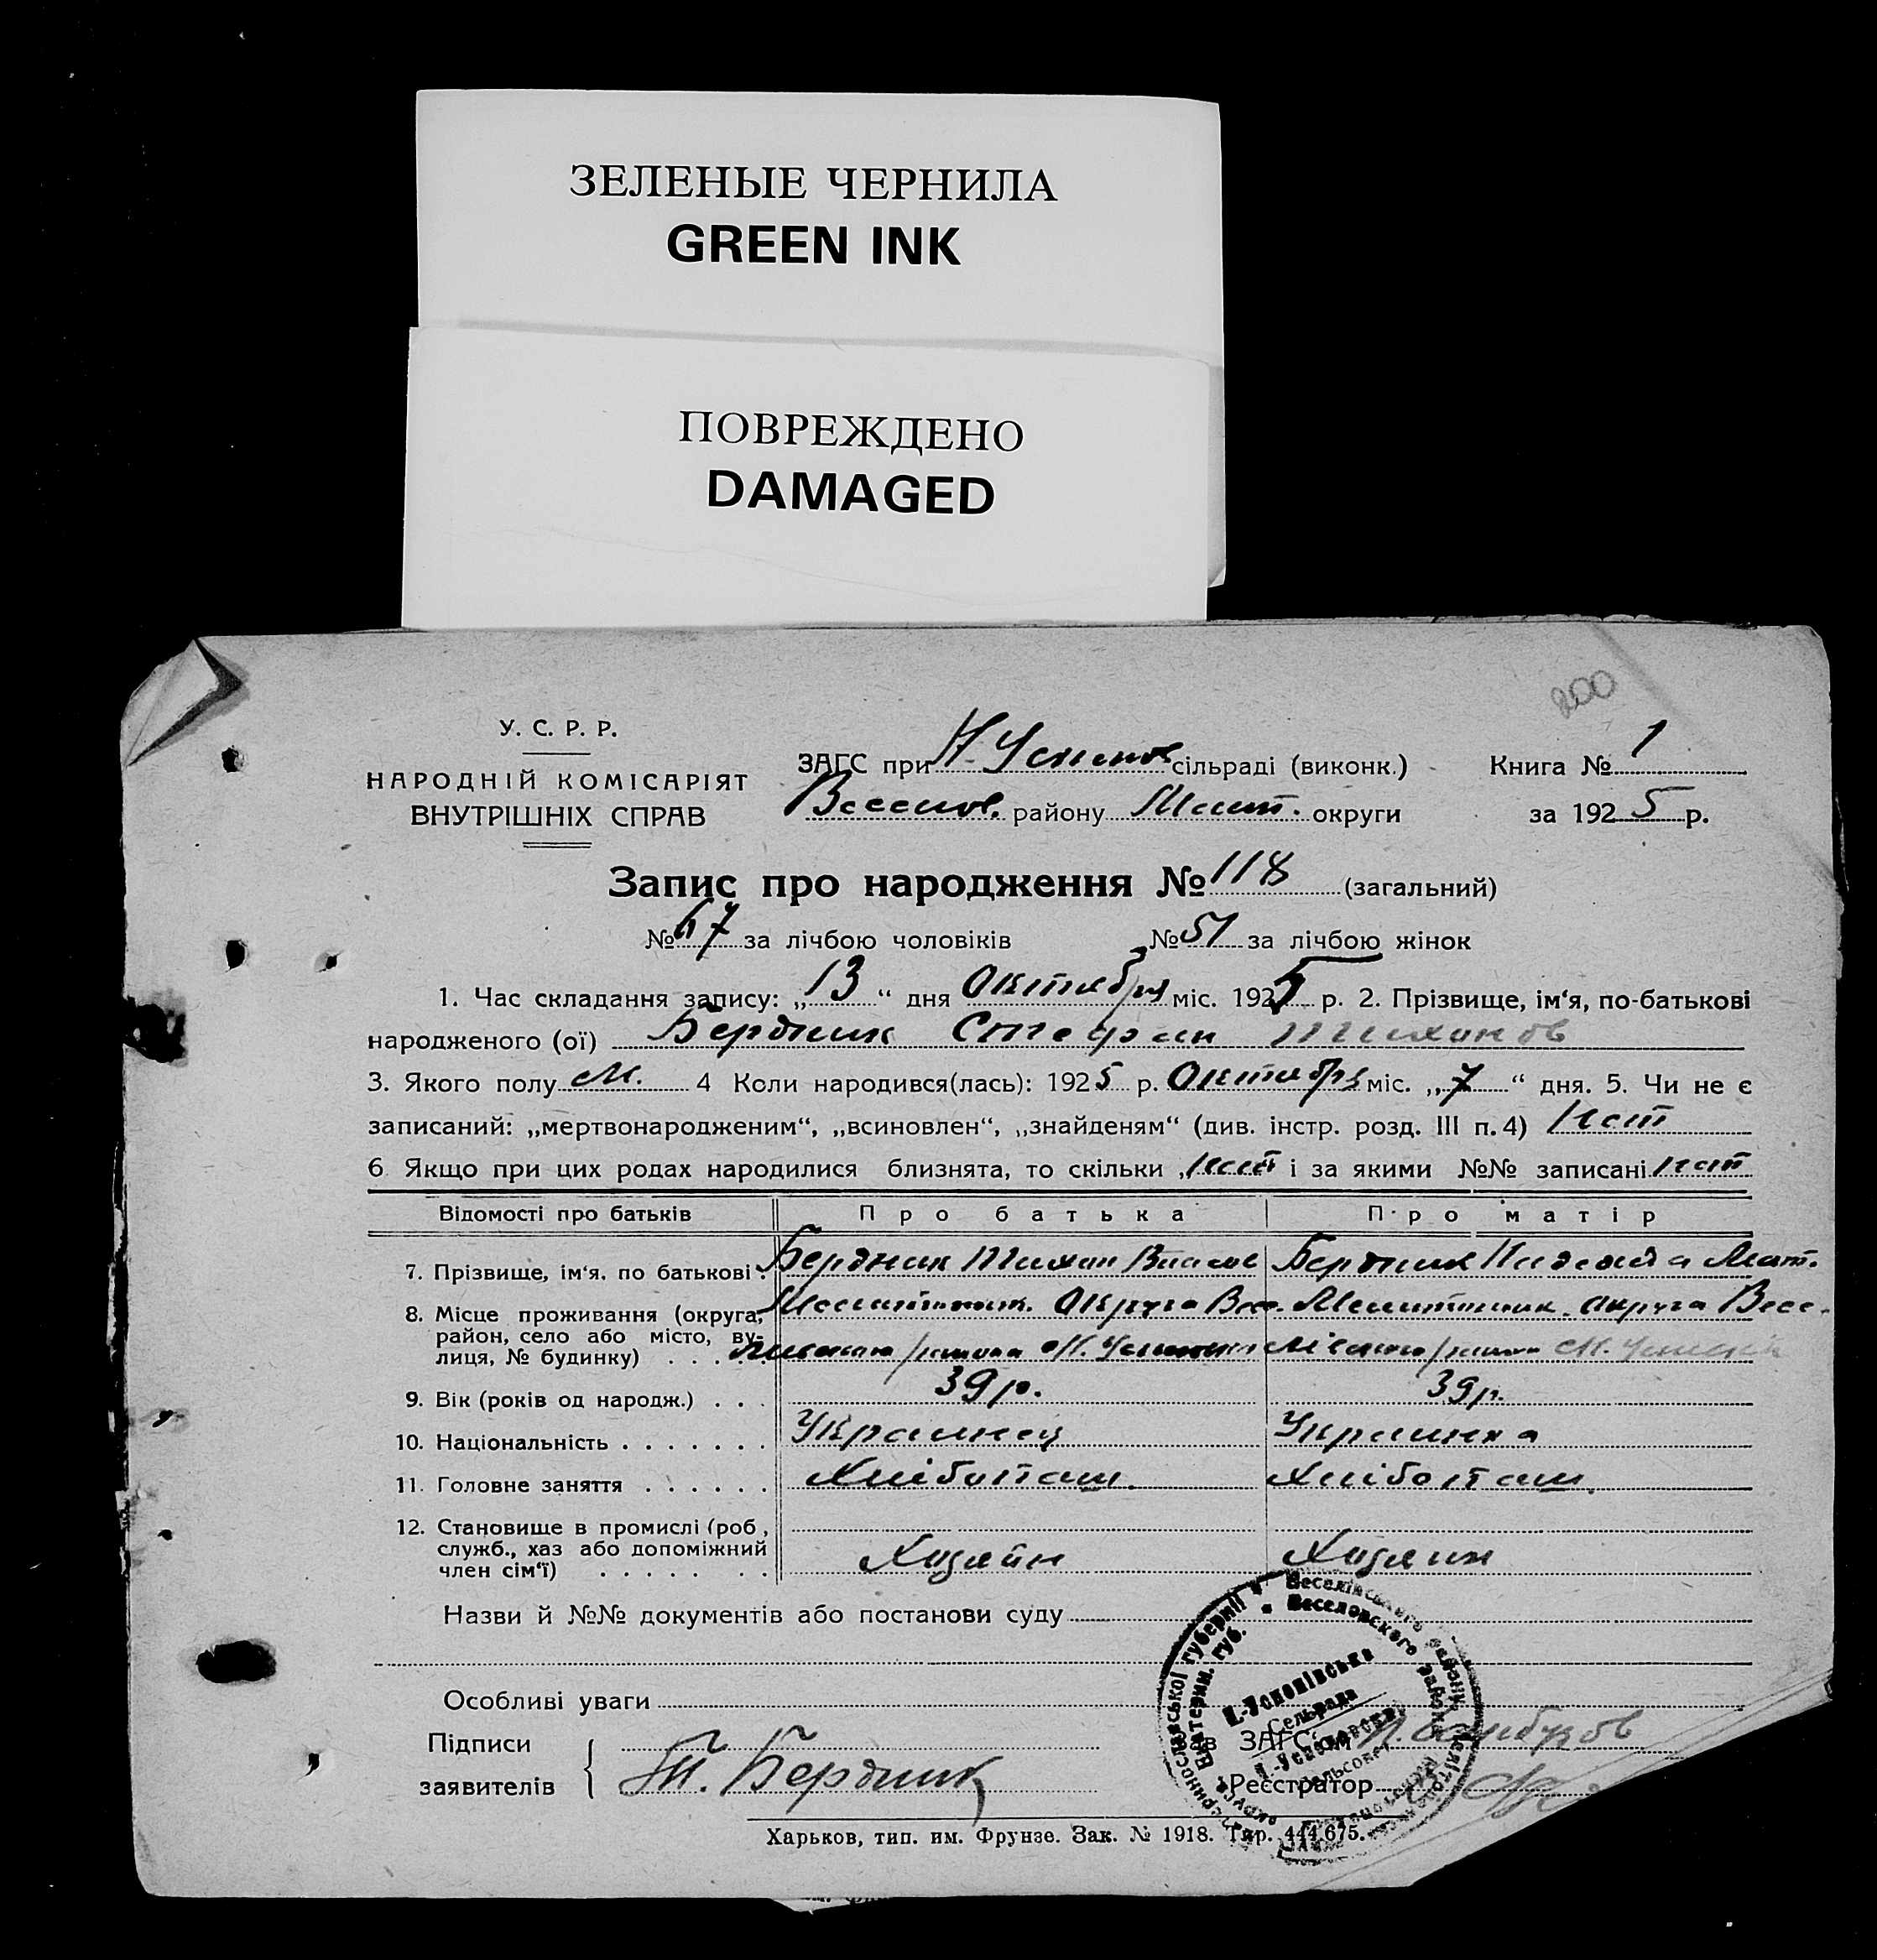 ЗЕЛЕНЫЕ ЧЕРНИЛА
GREEN INK
ПОВРЕЖДЕНО
DAMAGED
200
У. С. Р. Р.
НАРОДНІЙ КОМІСАРІЯТ
ВНУТРІШНІХ СПРАВ
ЗАГС при Н-Успенов сільраді (виконк.)
Веселов. району Мелит. округи
Книга № 1
за 1925 р.
Запис про народження № 118 (загальний)
№ 67 за лічбою чоловіків № 51 за лічбою жінок
1. Час складання запису: „13“ дня Октября міс. 1925 р. 2. Прізвище, ім‘я, по-батькові
народженого (ої) Бердник Стефан Тихонов
3. Якого полу М. 4 Коли народився(лась): 1925 р. Октября міс. „7“ дня. 5. Чи не є
записаний: „мертвонародженим“, „всиновлен“, „знайденям“ (див. інстр. розд. III п. 4) Нет
6. Якщо при цих родах народилися близнята, то скільки „нет і за якими №№ записані нет
Відомості про батьків Про батька Про матір
7. Прізвище, ім‘я, по батькові . Бердник Тихон Власов Бердник Надежда Мат.
8. Місце проживання (округа, Мелитопольск. Округа Весе- Мелитопольск. округа Весе-
район, село або місто, ву-
лиця, № будинку) . . . . . району Н. Успеновк
9. Вік (років од народж.) . . . 39 р. 39 р.
10. Національність . . . . . . . Украинец Украинка
11. Головне заняття . . . . . . Хлібопаш. Хлібопаш.
12. Становище в промислі (роб,
служб., хаз або допоміжний Хозяйн Хозяин
член сім‘ї) . . . . . . .
Назви й №№ документів або постанови суду
Особливі уваги
Підписи
заявителів Т. Бердник
Зав ЗАГС‘ом
Реєстратор
Веселівського
Веселовского района
Екатерин. губ.
Н-Успенівська
Сельрада
Сельсовет
Харьков, тип. им. Фрунзе. Зак. № 1918. Тир. 444.675.